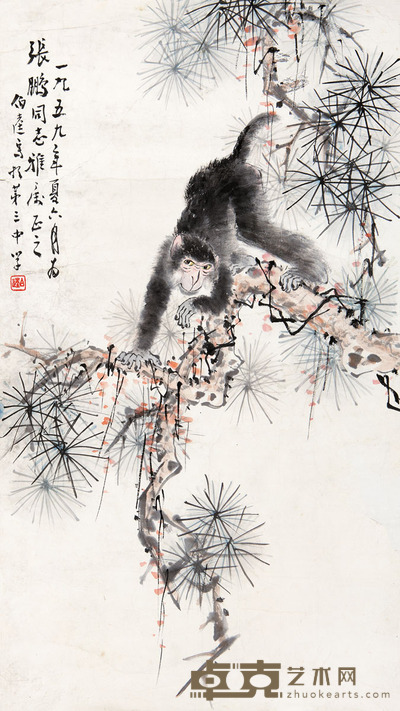 一九五九年夏六月为
张鹏同志雅属正之
伯达写于第三中学
卓克艺术网
zhuokearts.com